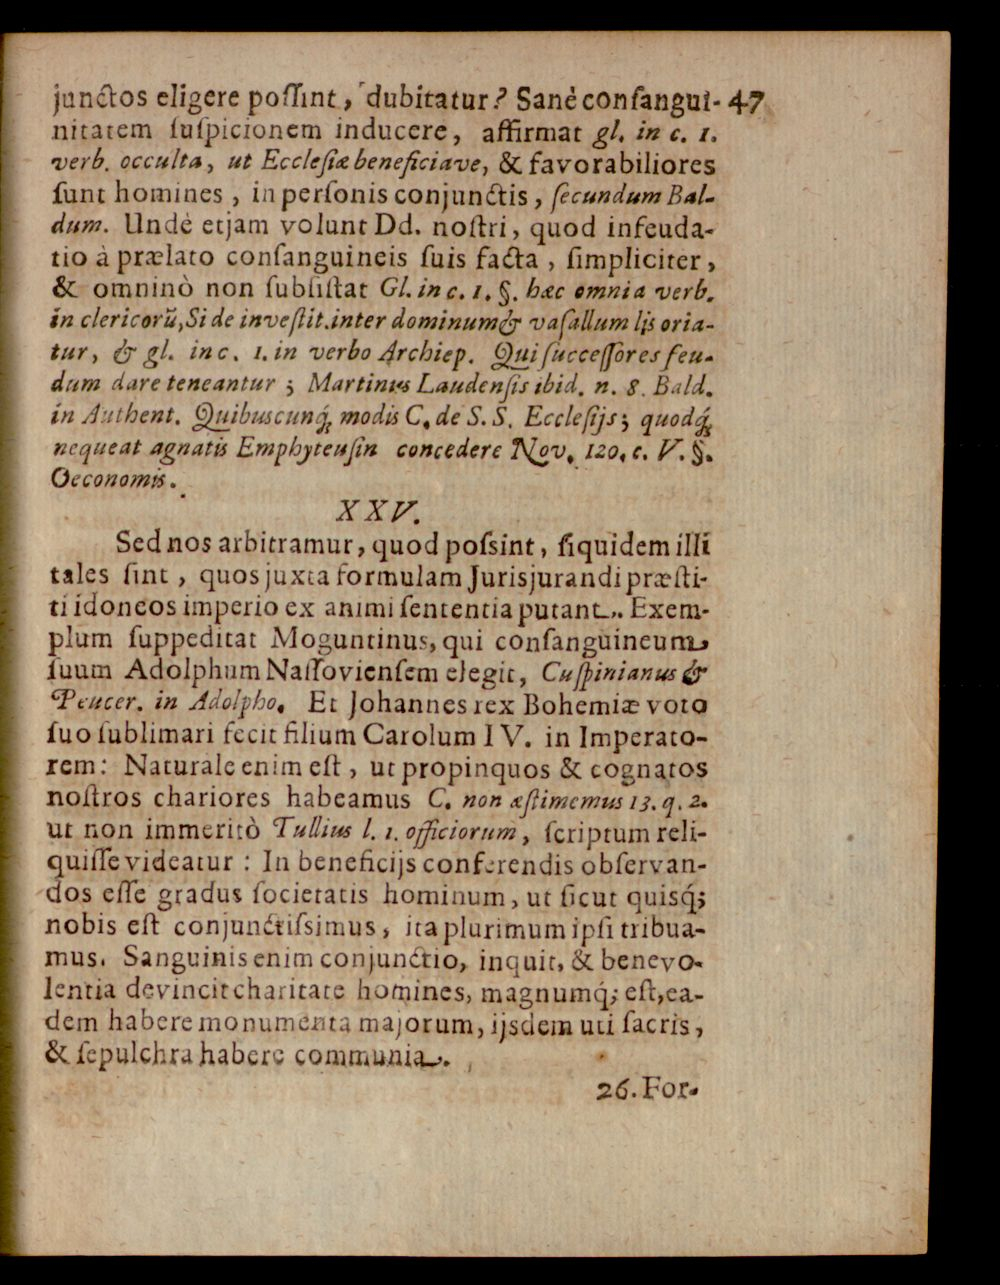 junctos eligere poſſint, dubitatur? Sanè conſangui- 47
nitatem ſuſpicionem inducere, affirmat gl. in c. 1.
verb. occulta, ut Eccleſiæ beneficiave, & favorabiliores
ſunt homines, in perſonis conjunctis, ſecundum Bal-
dum. Undè etjam volunt Dd. noſtri, quod infeuda-
tio à prælato conſanguineis ſuis facta, ſimpliciter,
& omninò non ſubſiſtat Gl. in c. 1. §. hæc omnia verb.
in clericorū, Si de inveſtit. inter dominum & vaſallum lis oria-
tur, & gl. in c. 1. in verbo Archiep. Qui ſucceſſores feu-
dum dare teneantur; Martinus Laudenſis ibid. n. 8. Bald.
in Authent. Quibuscunq́; modis C. de S. S. Eccleſijs; quodq́;
nequeat agnatis Emphyteuſin concedere Nov. 120. c. V. §.
Oeconomis.
XXV.
Sed nos arbitramur, quod poſsint, ſiquidem illi
tales ſint, quos juxta formulam Jurisjurandi præſti-
ti idoneos imperio ex animi ſententia putant. Exem-
plum ſuppeditat Moguntinus, qui conſanguineum
ſuum Adolphum Naſſovienſem elegit, Cuſpinianus &
Peucer. in Adolpho. Et Johannes rex Bohemiæ voto
ſuo ſublimari fecit filium Carolum IV. in Imperato-
rem: Naturale enim eſt, ut propinquos & cognatos
noſtros chariores habeamus C. non æſtimemus 13. q. 2.
ut non immeritò Tullius l. 1. officiorum, ſcriptum reli-
quiſſe videatur: In beneficijs conferendis obſervan-
dos eſſe gradus ſocietatis hominum, ut ſicut quisq́;
nobis eſt conjunctiſsimus, ita plurimum ipſi tribua-
mus. Sanguinis enim conjunctio, inquit, & benevo-
lentia devincit charitate homines, magnumq́; eſt, ea-
dem habere monumenta majorum, ijsdem uti ſacris,
& ſepulchra habere communia.
26. For-